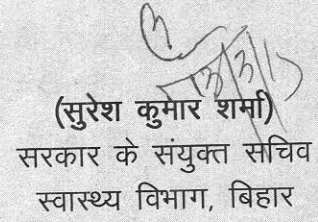 (सुरेश कुमार शर्मा)
सरकार के संयुक्त सचिव
स्वास्थ्य विभाग, बिहार